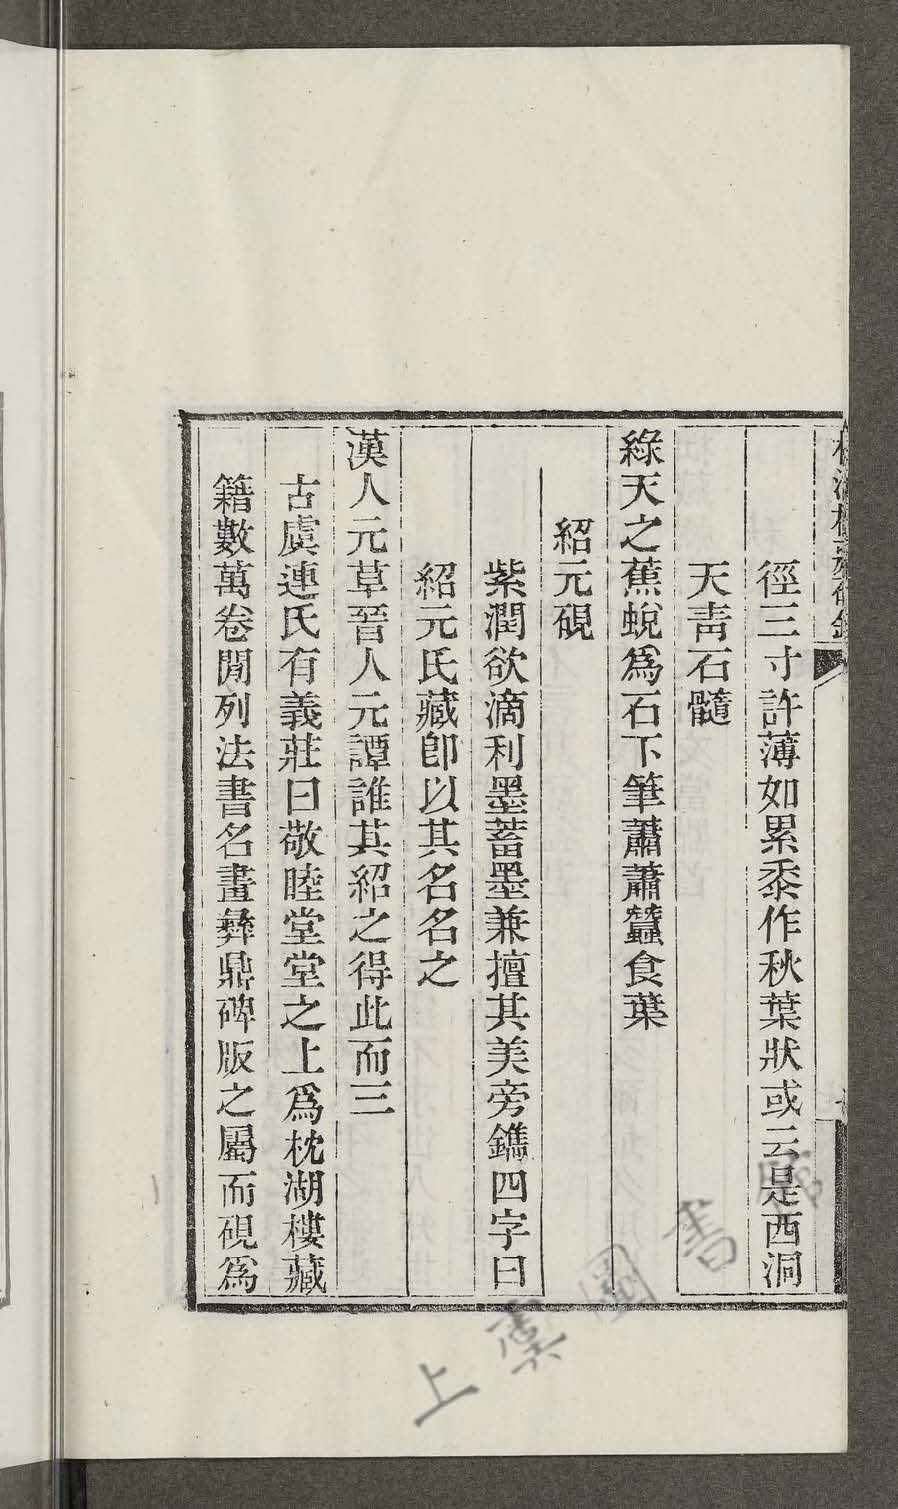 枕湖樓藏硯銘
徑三寸許薄如累黍作秋葉狀或云是西洞
天青石髓
綠天之蕉蛻爲石下筆蕭蕭蠶食葉
紹元硯
紫潤欲滴利墨蓄墨兼擅其美旁鐫四字曰
紹元氏藏卽以其名名之
漢人元草晉人元譚誰其紹之得此而三
古虞連氏有義莊曰敬睦堂堂之上爲枕湖樓藏
籍數萬卷閒列法書名畫彝鼎碑版之屬而硯爲
上虞圖書館